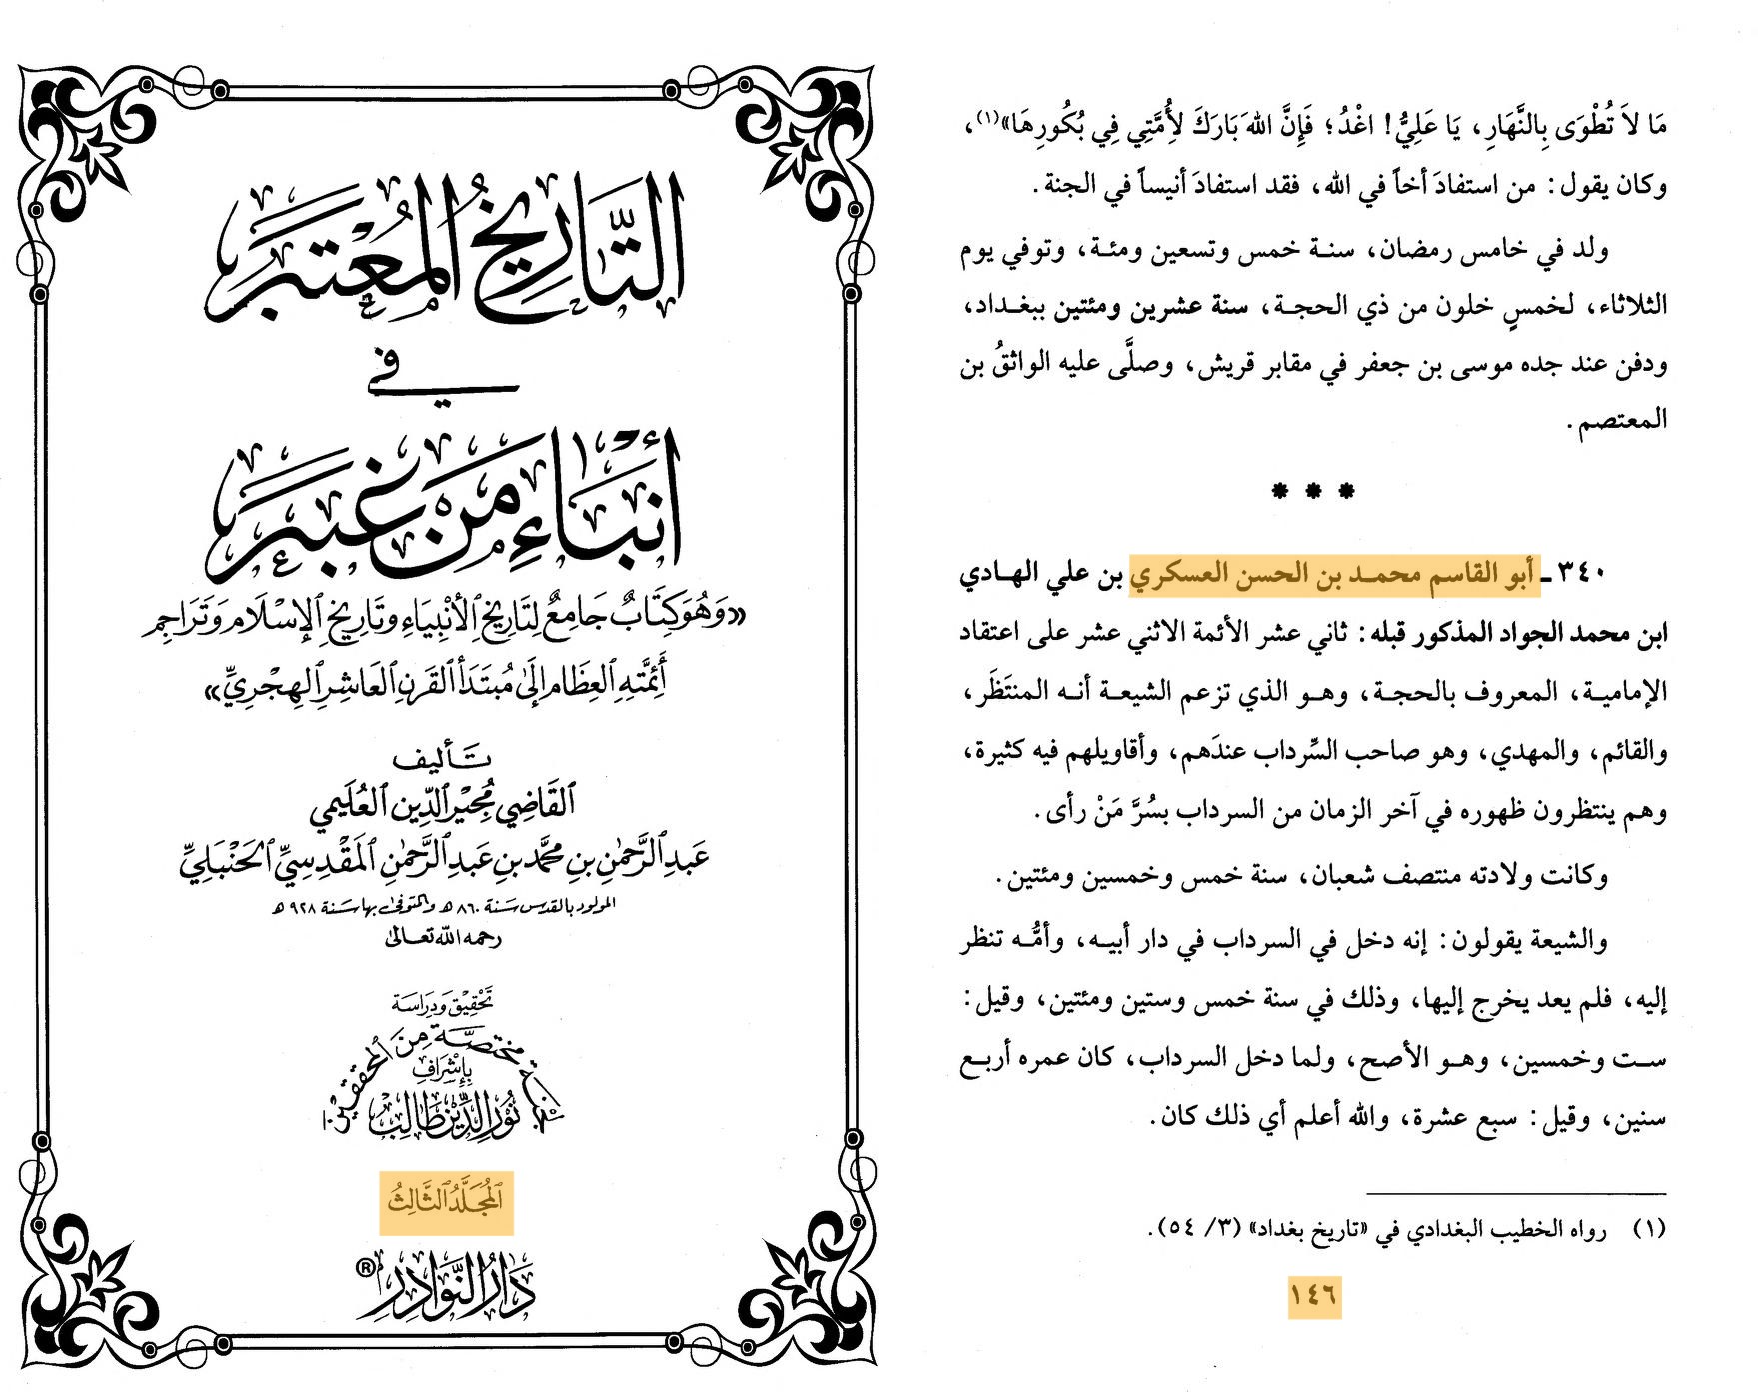 التَّارِيخُ المُعْتَبَر
في
أَنْبَاءِ مَنْ غَبَر
«وَهُوَ كِتَابٌ جَامِعٌ لِتَارِيخِ الأَنْبِيَاءِ وَتَارِيخِ الإِسْلَامِ وَتَرَاجِمِ
أَئِمَّتِهِ العِظَامِ إِلَى مُبْتَدَأ القَرْنِ العَاشِرِ الهِجْرِيِّ»
تَأليف
القَاضِي مُجِيْرِ الدِّينِ العُلَيمِي
عَبدِ الرَّحمٰنِ بنِ مُحَمَّد بنِ عَبدِ الرَّحمٰنِ المَقْدِسِيِّ الحَنْبَلِيِّ
المولود بالقدس سَنة ٨٦٠ هـ والمتوفى بها سَنة ٩٢٨ هـ
رحمه الله تعالى
تَحْقِيْق وَدِرَاسَة
لجنة مختصَّة مِنَ المحققين
بِإِشْرَافِ
نُوْرِ الدِّيْن طَالِب
المُجَلَّدُ الثَّالِثُ
دَارُ النَّوَادِرِ ®
مَا لاَ تُطْوَى بِالنَّهَارِ، يَا عَلِيُّ! اغْدُ؛ فَإِنَّ اللهَ بَارَكَ لِأُمَّتِي فِي بُكُورِهَا»(١)،
وكان يقول: من استفادَ أخاً في الله، فقد استفادَ أنيساً في الجنة.
ولد في خامس رمضان، سنة خمس وتسعين ومئة، وتوفي يوم
الثلاثاء، لخمسٍ خلون من ذي الحجة، سنة عشرين ومئتين ببغداد،
ودفن عند جده موسى بن جعفر في مقابر قريش، وصلَّى عليه الواثقُ بن
المعتصم.
* * *
٣٤٠ ـ أبو القاسم محمد بن الحسن العسكري بن علي الهادي
ابن محمد الجواد المذكور قبله: ثاني عشر الأئمة الاثني عشر على اعتقاد
الإمامية، المعروف بالحجة، وهو الذي تزعم الشيعة أنه المنتَظَر،
والقائم، والمهدي، وهو صاحب السِّرداب عندَهم، وأقاويلهم فيه كثيرة،
وهم ينتظرون ظهوره في آخر الزمان من السرداب بسُرَّ مَنْ رأى.
وكانت ولادته منتصف شعبان، سنة خمس وخمسين ومئتين.
والشيعة يقولون: إنه دخل في السرداب في دار أبيه، وأمُّه تنظر
إليه، فلم يعد يخرج إليها، وذلك في سنة خمس وستين ومئتين، وقيل:
ست وخمسين، وهو الأصح، ولما دخل السرداب، كان عمره أربع
سنين، وقيل: سبع عشرة، والله أعلم أي ذلك كان.
(١) رواه الخطيب البغدادي في «تاريخ بغداد» (٣/ ٥٤).
١٤٦